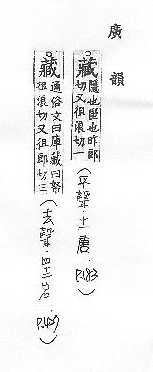 廣韻
藏 隱也匿也昨郎切又徂浪切一 (平聲·十一唐. P.183)
藏 通俗文曰庫藏曰帑徂浪切又徂郎切三 (去聲·四十二宕.)